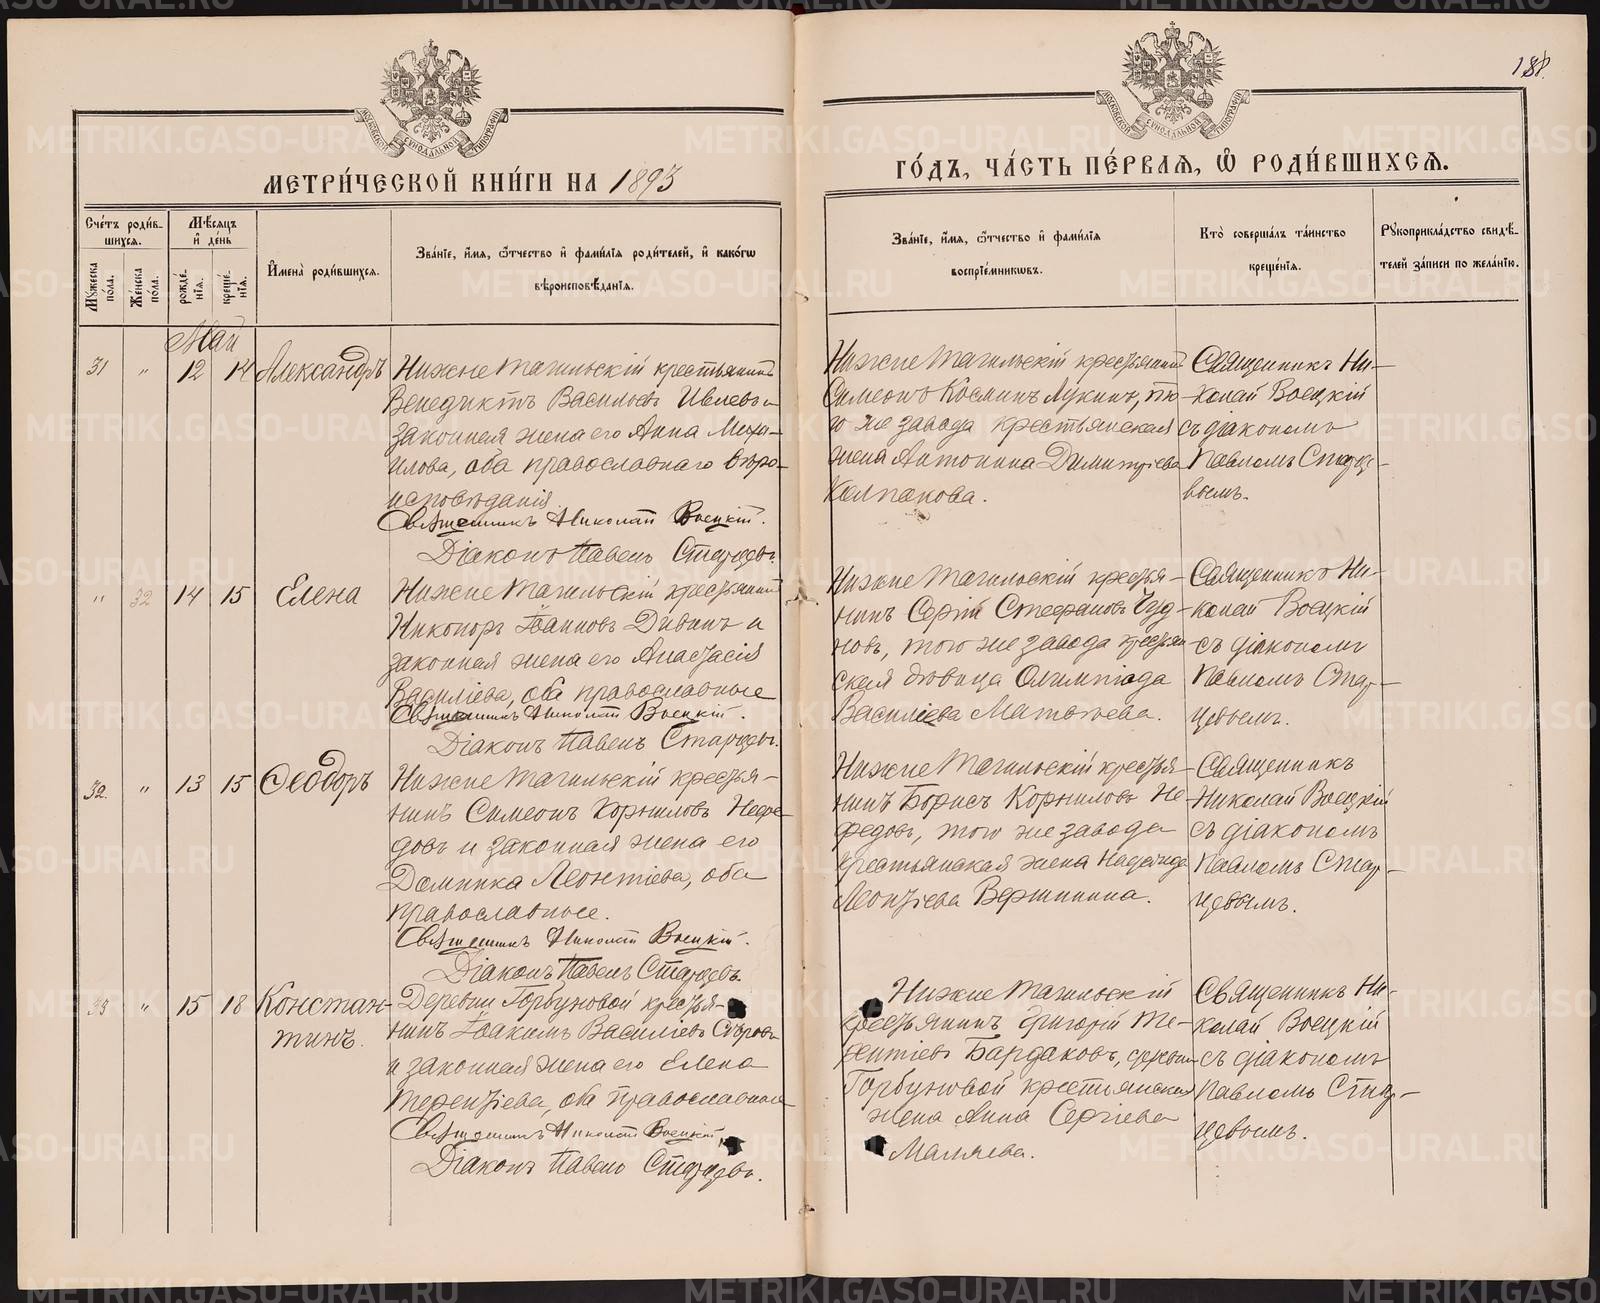 188.
МОСКОВСКОЙ СѴНОДАЛЬНОЙ ТИПОГРАФІИ
МОСКОВСКОЙ СѴНОДАЛЬНОЙ ТИПОГРАФІИ
МЕТРИ́ЧЕСКОЙ КНИ́ГИ НА 1893
ГО́ДЪ, ЧА́СТЬ ПЕ́РВАЯ, Ѽ РОДИ́ВШИХСЯ.
Сче́тъ роди́в-
шихся.
Мꙋ́жеска по́ла.
Же́нска по́ла.
Мѣ́сяцъ
и҆ де́нь
рожде́-
нїя.
креще́-
нїя.
И҆мена̀ роди́вшихся.
Зва́нїе, и҆́мя, ѻ҆́тчество и҆ фами́лїя роди́телей, и҆ како́гѡ
вѣроисповѣ́данїя.
Зва́нїе, и҆́мя, ѻ҆́тчество и҆ фами́лїя
воспрїе́мниковъ.
Кто̀ соверша́лъ та́инство
креще́нїя.
Рꙋкоприкла́дство свидѣ́-
телей за́писи по жела́нїю.
Май
31 " 12 14 Александръ
Нижне Тагильскій крестьянинъ
Венедиктъ Васильевъ Ивлевъ и
законная жена его Анна Миха-
илова, оба православнаго вѣро-
исповѣданія
Священникъ Николай Воецкій.
Діаконъ Павелъ Старцевъ.
Нижне Тагильскій крестьянинъ
Симеонъ Косминъ Лукинъ, то-
го же завода крестьянская
жена Антонина Димитріева
Колпакова.
Священникъ Ни-
колай Воецкій
съ діакономъ
Павломъ Старце-
вымъ.
" 32 14 15 Елена
Нижне Тагильскій крестьянинъ
Никоноръ Іоанновъ Дивинъ и
законная жена его Анастасія
Василіева, оба православные
Священникъ Николай Воецкій.
Діаконъ Павелъ Старцевъ.
Нижне Тагильскій крестья-
нинъ Сергій Стефановъ Чуд-
новъ, того же завода крестьян
ская дѣвица Олимпіада
Василіева Матвѣева.
Священникъ Ни-
колай Воецкій
съ діакономъ
Павломъ Стар-
цевымъ.
32. " 13 15 Ѳеодоръ
Нижне Тагильскій крестья-
нинъ Симеонъ Корниловъ Нефе-
довъ и законная жена его
Домника Леонтіева, оба
православные.
Священникъ Николай Воецкій.
Діаконъ Павелъ Старцевъ.
Нижне Тагильскій крестья-
нинъ Борисъ Корниловъ Не-
федовъ, того же завода
крестьянская жена Надежда
Леонтіева Вершинина.
Священникъ
Николай Воецкій
съ діакономъ
Павломъ Стар-
цевымъ.
33 " 15 18 Констан-
тинъ.
Деревни Горбуновой крестья-
нинъ Іоакимъ Василіевъ
и законная жена его Елена
Терентіева, оба православные
Священникъ Николай Воецкій
Діаконъ Павелъ Старцевъ.
Нижне Тагильскій
крестьянинъ Григорій Те-
рентіевъ Бардаковъ, деревни
Горбуновой крестьянская
жена Анна Сергіева
Маляева.
Священникъ Ни-
колай Воецкій
съ діакономъ
Павломъ Стар-
цевымъ.
METRIKI.GASO-URAL.RU